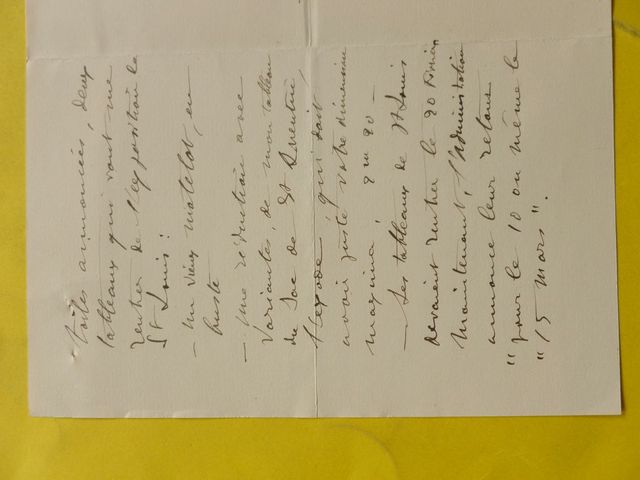 toiles annoncées, deux
tableaux qui vont me
rentrer de l'exposition de
St Louis :
— un vieux matelot, en
buste
— une réduction avec
variantes, de mon tableau
du Sac de St Quentin,
exposé, qui doit
avoir juste votre dimension
maxima, 2m 20 —
— Les tableaux de St Louis
devaient rentrer le 20 février
Maintenant, l'administration
annonce leur retour
"pour le 10 ou même le
"15 mars".